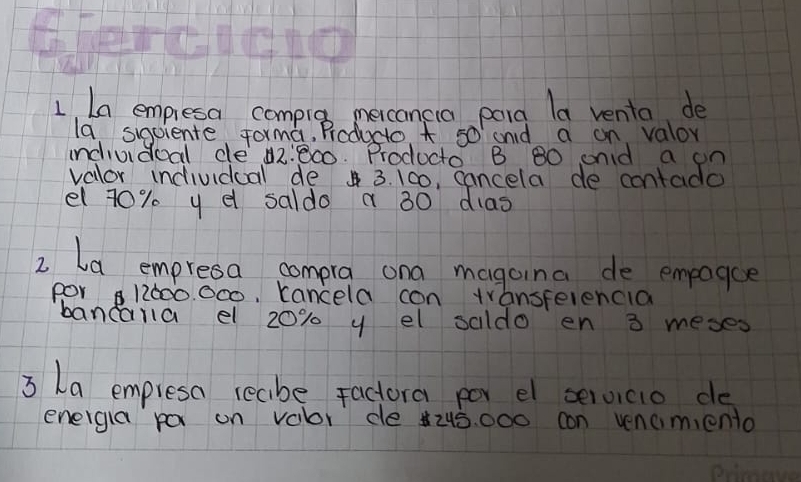 Ejercicio
1 La empresa compra mercancia para la venta de
la siguiente forma. Producto A 50 unid a un valor
individual de $2.800. Producto B 80 unid a un
valor individual de $ 3.100, cancela de contado
el 70% y el saldo a 30 dias
2 La empresa compra una maquina de empaque
por $ 12000.000. cancela con transferencia
bancaria el 20% y el saldo en 3 meses
3 La empresa recibe Factura por el servicio de
energia por un valor de $245.000 con vencimiento
Primave